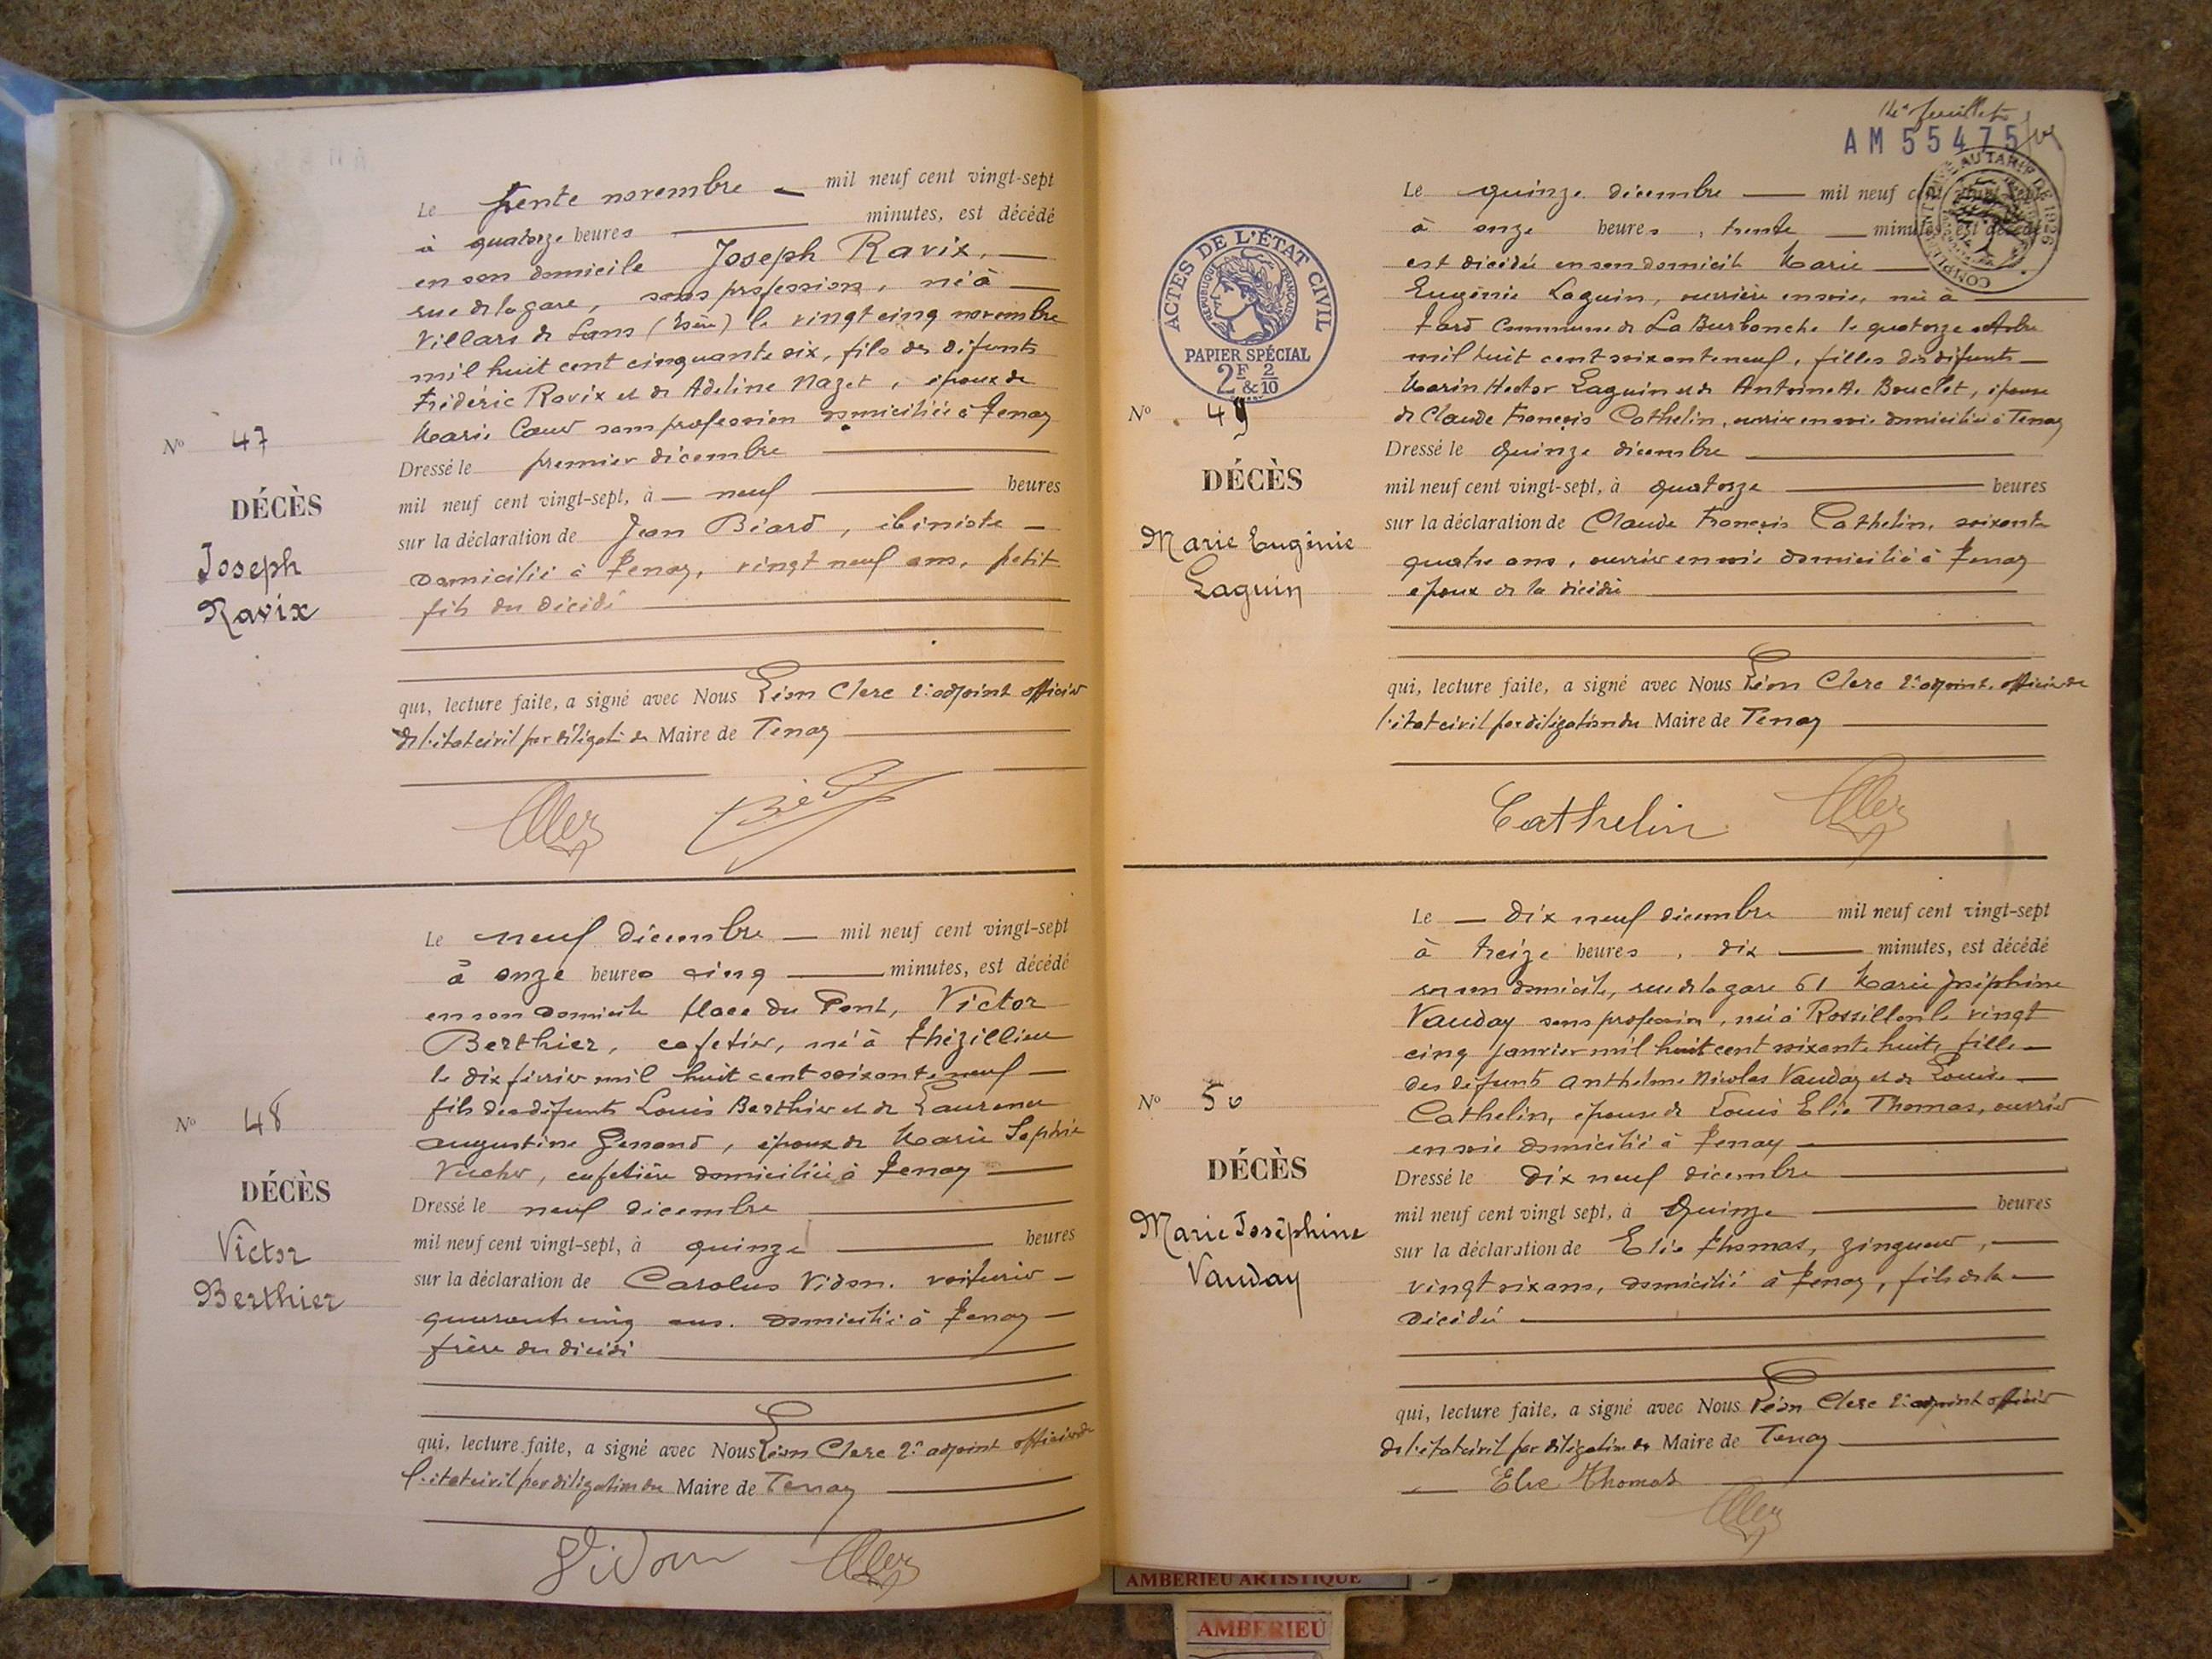 Le trente novembre mil neuf cent vingt-sept
à quatorze heures minutes, est décédé
en son domicile Joseph Ravix,
rue de la gare, sans profession, né à
Villars de Lans (Isère) le vingt cinq novembre
mil huit cent cinquante six, fils des défunts
Frédéric Ravix et de Adeline Nazet, époux de
Marie sans profession domiciliée à Tenay
Dressé le premier décembre
mil neuf cent vingt-sept, à neuf heures
sur la déclaration de Jean Béard, ébéniste
domicilié à Tenay, vingt neuf ans, petit
fils du décédé
qui, lecture faite, a signé avec Nous Léon Clerc 2e adjoint officier
de l'état civil par délégation du Maire de Tenay
No 47
DÉCÈS
Joseph
Ravix
Le neuf décembre mil neuf cent vingt-sept
à onze heures cinq minutes, est décédé
en son domicile place du Pont, Victor
Berthier, cafetier, né à Thézillieu
le dix février mil huit cent soixante neuf
fils des défunts Louis Berthier et de Laurence
Augustine Genand, époux de Marie Sophie
cafetière domiciliée à Tenay
Dressé le neuf décembre
mil neuf cent vingt-sept, à quinze heures
sur la déclaration de Carolus Vidon, voiturier
quarante cinq ans, domicilié à Tenay
frère du décédé
qui, lecture faite, a signé avec Nous Léon Clerc 2e adjoint officier de
l'état civil par délégation du Maire de Tenay
Vidon
No 48
DÉCÈS
Victor
Berthier
14e feuillet
AM 55475
ACTES DE L'ÉTAT CIVIL
RÉPUBLIQUE FRANÇAISE
PAPIER SPÉCIAL
2F & 2/10
Le quinze décembre mil neuf cent vingt-sept
à onze heures, trente minutes, est décédé
est décédée en son domicile Marie
Eugénie Laguin, ouvrière en soie, née à
Tard Commune de La Burbanche le quatorze octobre
mil huit cent soixante neuf, filles des défunts
Marin Hector Laguin et de Antoinette Bouclet, épouse
de Claude François Cathelin, ouvrier en soie domicilié à Tenay
Dressé le quinze décembre
mil neuf cent vingt-sept, à quatorze heures
sur la déclaration de Claude François Cathelin, soixante
quatre ans, ouvrier en soie domicilié à Tenay
époux de la décédée
qui, lecture faite, a signé avec Nous Léon Clerc 2e adjoint officier de
l'état civil par délégation du Maire de Tenay
Cathelin
No 49
DÉCÈS
Marie Eugénie
Laguin
Le dix neuf décembre mil neuf cent vingt-sept
à treize heures, dix minutes, est décédé
en son domicile, rue de la gare 61 Marie Joséphine
Vauday sans profession, née à Rossillon le vingt
cinq janvier mil huit cent soixante huit, fille
des défunts Anthelme Nicolas Vauday et de Louise
Cathelin, épouse de Louis Elie Thomas, ouvrier
en soie domicilié à Tenay
Dressé le dix neuf décembre
mil neuf cent vingt sept, à quinze heures
sur la déclaration de Elie Thomas, zingueur,
vingt six ans, domicilié à Tenay, fils de la
décédée
qui, lecture faite, a signé avec Nous Léon Clerc 2e adjoint officier
de l'état civil par délégation du Maire de Tenay
Elie Thomas
No 50
DÉCÈS
Marie Joséphine
Vauday
AMBERIEU ARTISTIQUE
AMBERIEU